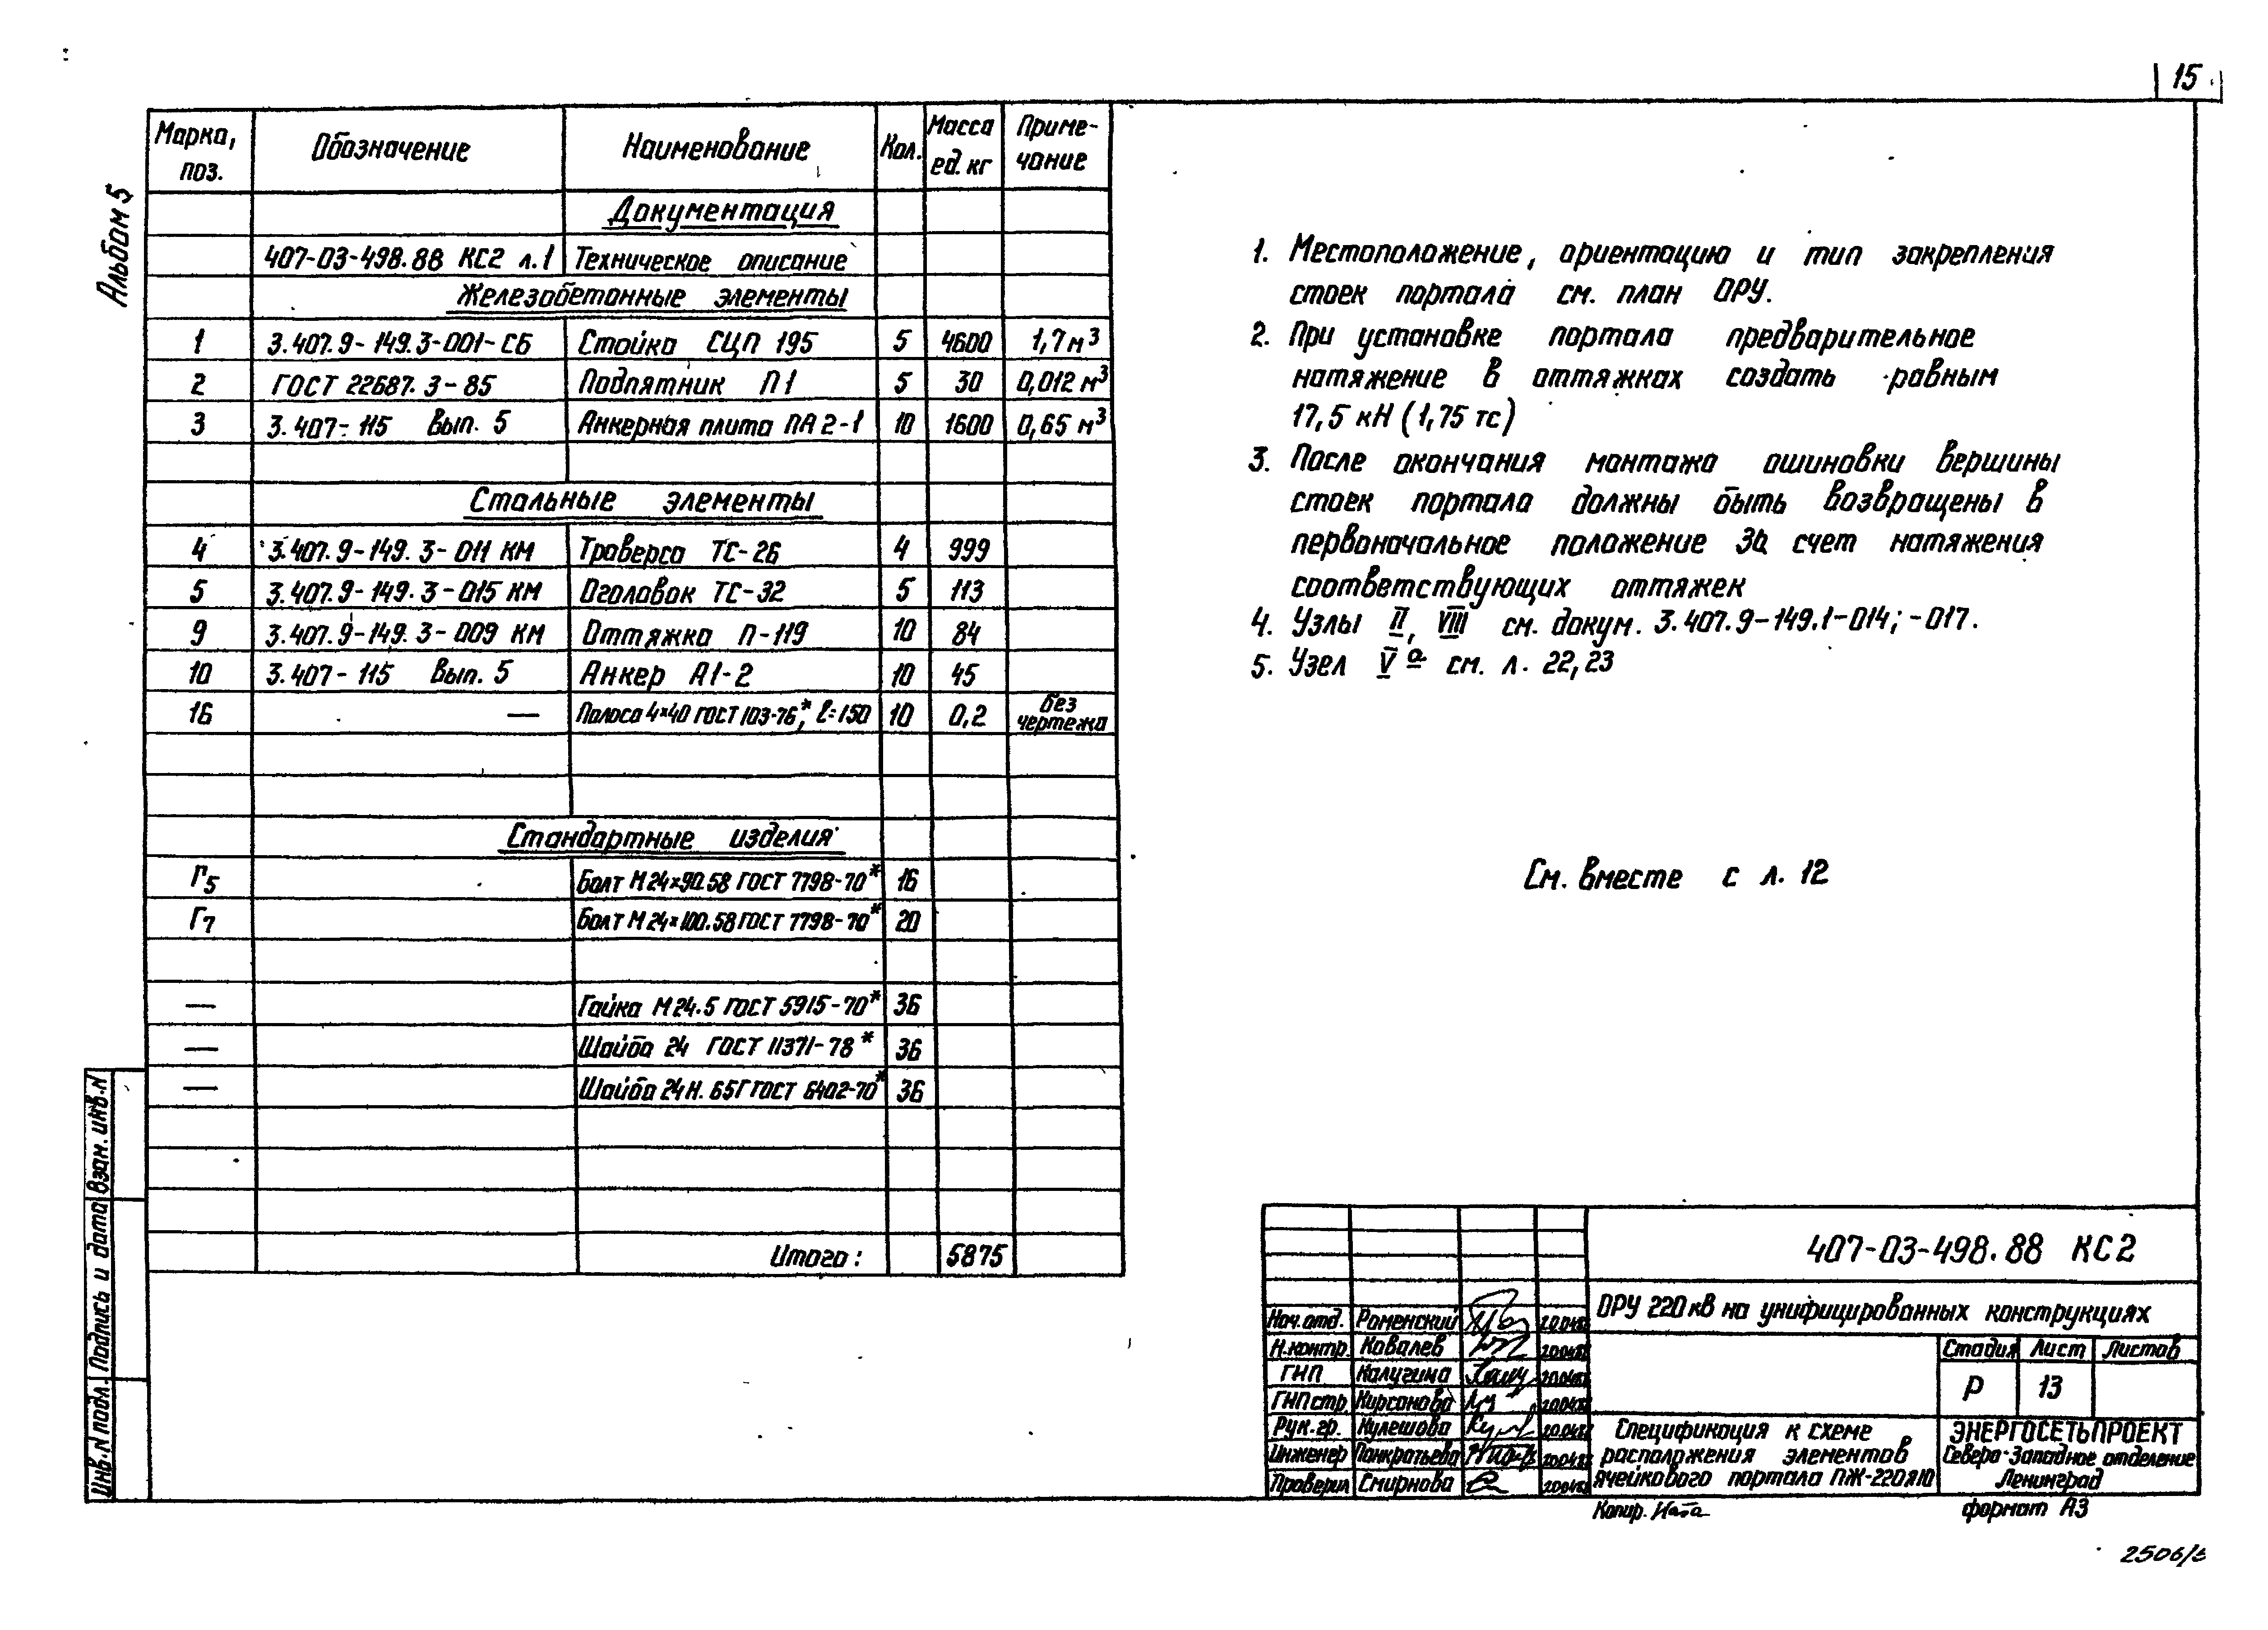 15
Альбом 5
Марка, поз. Обозначение Наименование Кол. Масса ед. кг Приме-чание
Документация
407-03-498.88 КС2 л.1 Техническое описание
Железобетонные элементы
1 3.407.9-149.3-001-СБ Стойка СЦП 195 5 4600 1,7 м³
2 ГОСТ 22687.3-85 Подпятник П1 5 30 0,012 м³
3 3.407-115 Вып. 5 Анкерная плита ПА2-1 10 1600 0,65 м³
Стальные элементы
4 3.407.9-149.3-011 КМ Траверса ТС-26 4 999
5 3.407.9-149.3-015 КМ Оголовок ТС-32 5 113
9 3.407.9-149.3-009 КМ Оттяжка П-119 10 84
10 3.407-115 Вып. 5 Анкер А1-2 10 45
16 — Полоса 4×40 ГОСТ 103-76*, ℓ=150 10 0,2 без чертежа
Стандартные изделия
Г5 Болт М24×90.58 ГОСТ 7798-70* 16
Г7 Болт М24×100.58 ГОСТ 7798-70* 20
— Гайка М24.5 ГОСТ 5915-70* 36
— Шайба 24 ГОСТ 11371-78* 36
— Шайба 24Н.65Г ГОСТ 6402-70* 36
Итого: 5875
1. Местоположение, ориентацию и тип закрепления
стоек портала см. план ОРУ.
2. При установке портала предварительное
натяжение в оттяжках создать равным
17,5 кН (1,75 тс)
3. После окончания монтажа ошиновки вершины
стоек портала должны быть возвращены в
первоначальное положение за счет натяжения
соответствующих оттяжек
4. Узлы II, VIII см. докум. 3.407.9-149.1-014; -017.
5. Узел Vа см. л. 22,23
См. вместе с л. 12
Инв.N подл. Подпись и дата Взам. инв.N
407-03-498.88 КС2
ОРУ 220 кВ на унифицированных конструкциях
Нач.отд. Роменский
Н.контр. Ковалев
ГИП Калугина
ГИП стр. Кирсанова
Рук.гр. Кулешова
Инженер Панкратьева
Проверил Смирнова
Стадия Лист Листов
Р 13
Спецификация к схеме
расположения элементов
ячейкового портала ПЖ-220Я10
ЭНЕРГОСЕТЬПРОЕКТ
Северо-Западное отделение
Ленинград
Копир. формат А3